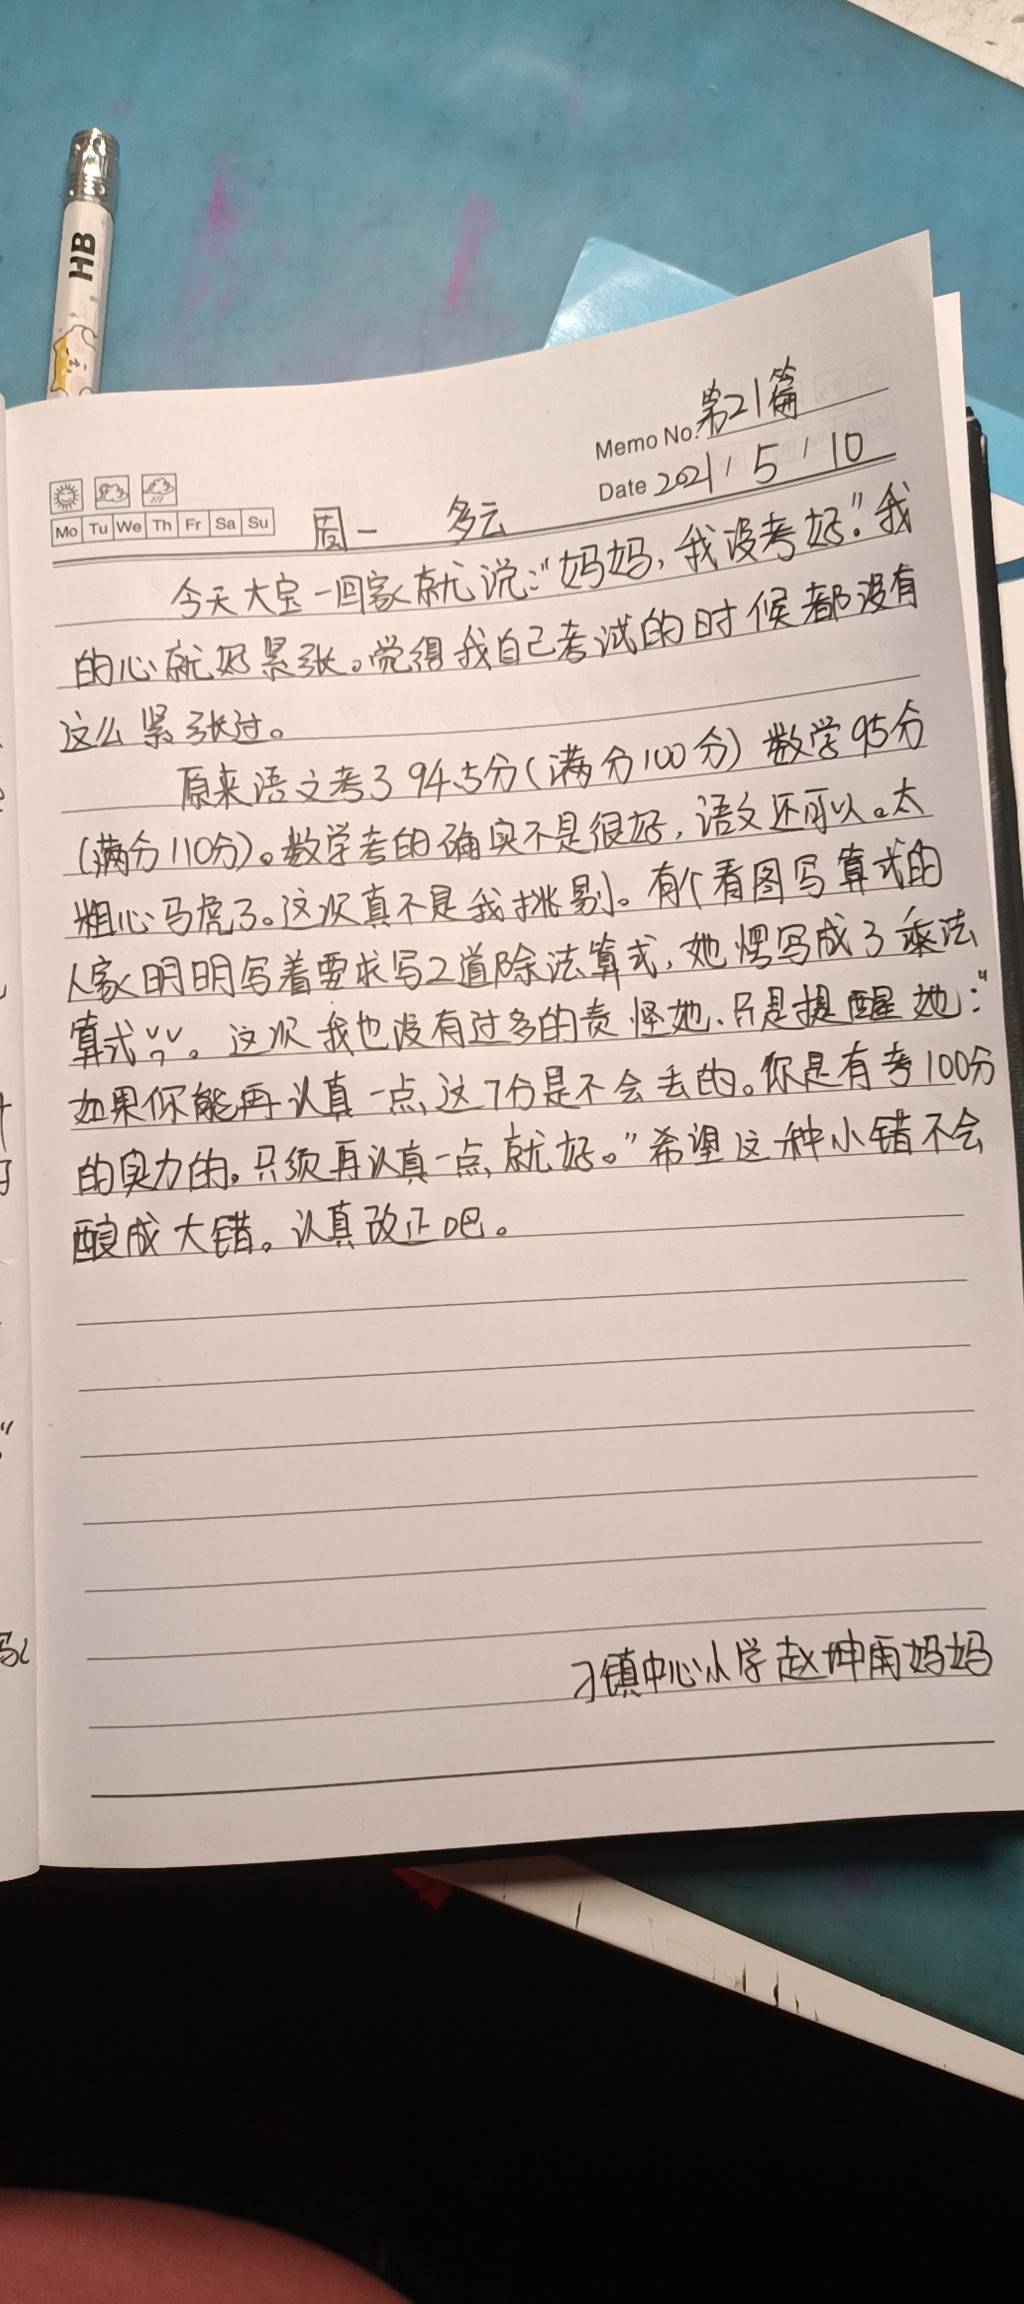 HB
Memo No. 第21篇
Date 2021 / 5 / 10
Mo Tu We Th Fr Sa Su 周一 多云
今天大宝一回家就说:"妈妈,我没考好."我
的心就好紧张。觉得我自己考试的时候都没有
这么紧张过。
原来语文考了94.5分(满分100分)数学95分
(满分110分)。数学考的确实不是很好,语文还可以。太
粗心马虎了。这次真不是我挑剔。有个看图写算式的
人家明明写着要求写2道除法算式,她愣写成了乘法
算式。这次我也没有过多的责怪她、只是提醒她:"
如果你能再认真一点,这7分是不会丢的。你是有考100分
的实力的。只须再认真一点,就好。"希望这种小错不会
酿成大错。认真改正吧。
刁镇中心小学赵坤雨妈妈